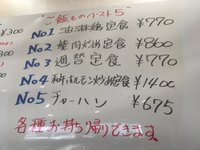 "ご飯もの小スト5
No1 油淋鶏定食 ¥770
No2 焼肉炒め定食 ¥860
No3 週替定食 ¥770
No4 和牛ホルモン炒め定食 ¥1400
No5 チャーハン ¥675
各種お持ち帰りできます
¥300